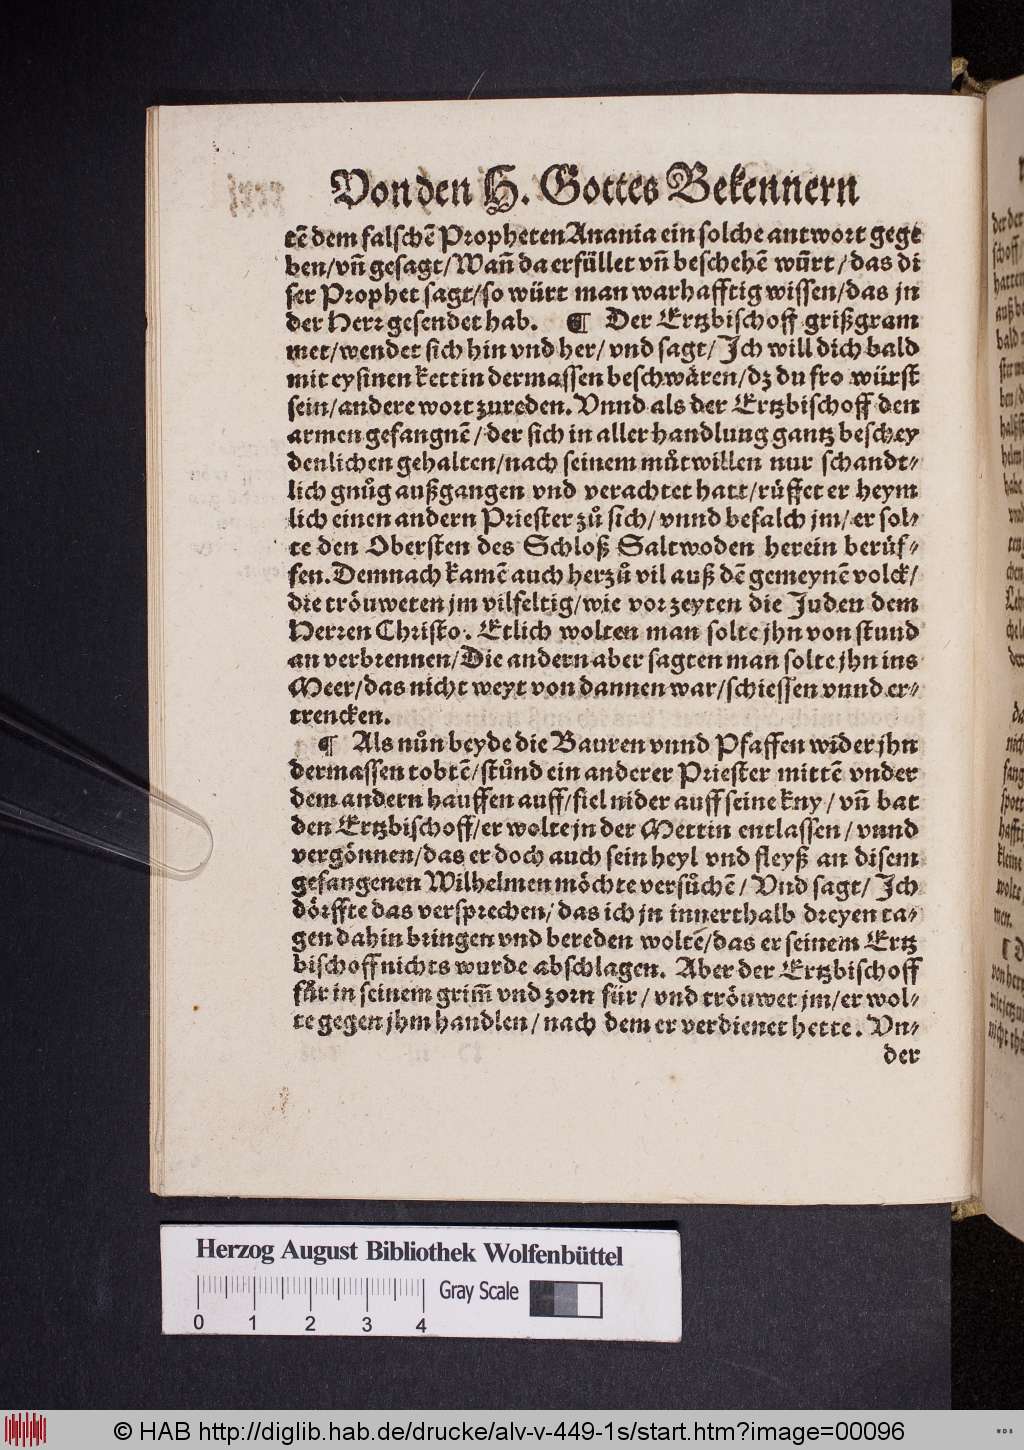 Von den H. Gottes Bekennern
tẽ dem falschẽ Propheten Anania ein solche antwort gege
ben/vñ gesagt/Wañ da erfüllet vñ beschehẽ würt/das di
ser Prophet sagt/so würt man warhafftig wissen/das jn
der Herr gesendet hab. ¶ Der Ertzbischoff grißgram
met/wendet sich hin vnd her/ vnd sagt/Ich will dich bald
mit eysinen kettin dermassen beschwären/dz du fro würst
sein/andere wort zureden. Vnnd als der Ertzbischoff den
armen gefangnẽ/der sich in aller handlung gantz beschey
denlichen gehalten/nach seinem můtwillen nur schandt⸗
lich gnůg außgangen vnd verachtet hatt/růffet er heym
lich einen andern Priester zů sich/ vnnd befalch jm/er sol⸗
te den Obersten des Schloß Saltwoden herein berůf⸗
fen. Demnach kamẽ auch herzů vil auß dẽ gemeynẽ volck/
die tröuweten jm vilfeltig/wie vorzeyten die Juden dem
Herren Christo. Etlich wolten man solte jhn von stund
an verbrennen/Die andern aber sagten man solte jhn ins
Meer/das nicht weyt von dannen war/schiessen vnnd er⸗
trencken.
¶ Als nůn beyde die Bauren vnnd Pfaffen wider jhn
dermassen tobtẽ/stůnd ein anderer Priester mittẽ vnder
dem andern hauffen auff/fiel nider auff seine kny/ vñ bat
den Ertzbischoff/er wolte jn der Mettin entlassen/ vnnd
vergönnen/das er doch auch sein heyl vnd fleyß an disem
gefangenen Wilhelmen möchte versůchẽ/ Vnd sagt/ Ich
dörffte das versprechen/das ich jn innerthalb dreyen ta⸗
gen dahin bringen vnd bereden woltẽ/das er seinem Ertz
bischoff nichts wurde abschlagen. Aber der Ertzbischoff
fůr in seinem grim̃ vnd zorn für/ vnd tröuwet jm/er wol⸗
te gegen jhm handlen/nach dem er verdienet hette. Vn⸗
der
Herzog August Bibliothek Wolfenbüttel
Gray Scale
0 1 2 3 4
© HAB http://diglib.hab.de/drucke/alv-v-449-1s/start.htm?image=00096